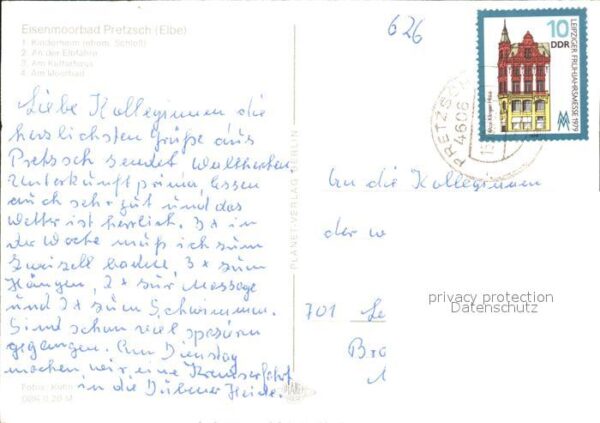 Eisenmoorbad Pretzsch (Elbe)
1. Kinderheim (ehem. Schloß)
2. An der Elbfähre
3. Am Kulturhaus
4. Am Moorbad
Liebe Kolleginnen die
herzlichsten Grüße aus
Pretzsch sendet
Unterkunft prima, Essen
auch sehr gut und das
Wetter ist herrlich. 3x in
der Woche muß ich zum
baden, 3x zum
Hängen, 2x zur Massage
und 2x zum Schwimmen.
Sind schon viel spazieren
gegangen. Am Dienstag
machen wir eine Kremserfahrt
in die Dübener Heide.
PLANET-VERLAG BERLIN
626
10
DDR
LEIPZIGER FRÜHJAHRSMESSE 1979
PRETZSCH
4606
An die Kolleginnen
der W
701 Le
privacy protection
Datenschutz